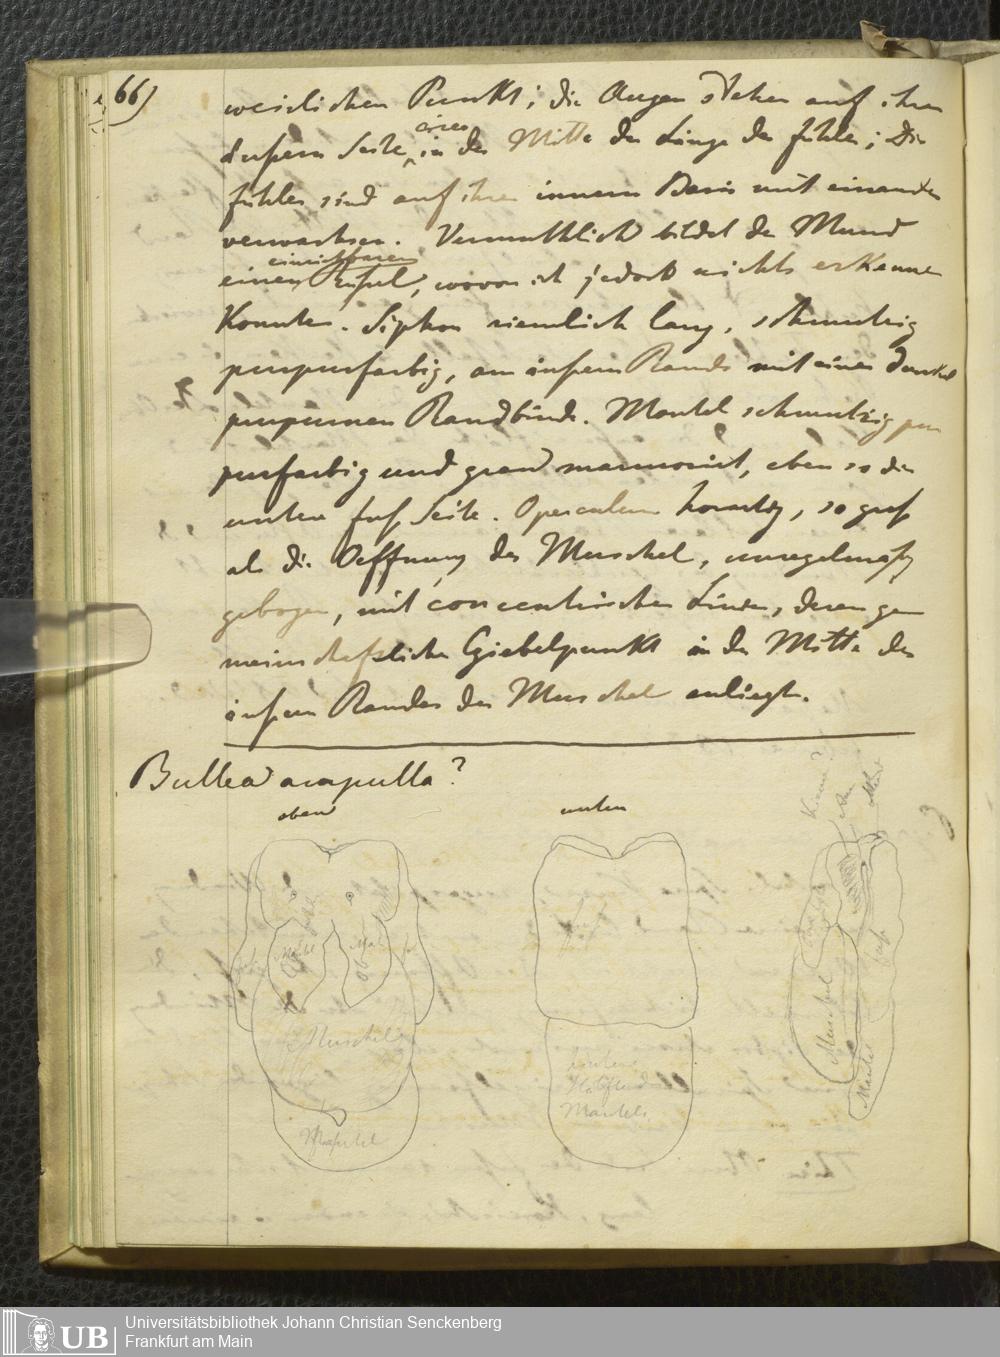 66)
weislichen Punkt; die Augen stehen auf ihrer
äußern Seite, circa in der Mitte der Länge der Fühler; Die
Fühler sind auf ihrer innern Basis mit einander
verwachsen. Vermuthlich bildet der Mund
einen einziehbaren Rüssel, wovon ich jedoch nichts erkennen
Konnte. Siphon ziemlich lang, schmutzig
purpurfarbig, am äußern Rande mit einer dunkel
purpurnen Randbinde. Mantel schmutzig pur
purfarbig und grau marmorirt, eben so die
untere Fuß Seite. Operculum hornartig, so groß
als die Oeffnung der Muschel, unregelmäßig
gebogen, mit concentrischen Linien, deren ge
meinschaftlicher Giebelpunkt in der Mitte des
äußern Randes der Muschel anliegt.
Bullea ampulla?
oben
unten
Mantel
Muschel
Fuß
Muschel
Mantel
hintere
Hälfte des
Mantels
Universitätsbibliothek Johann Christian Senckenberg
Frankfurt am Main
UB